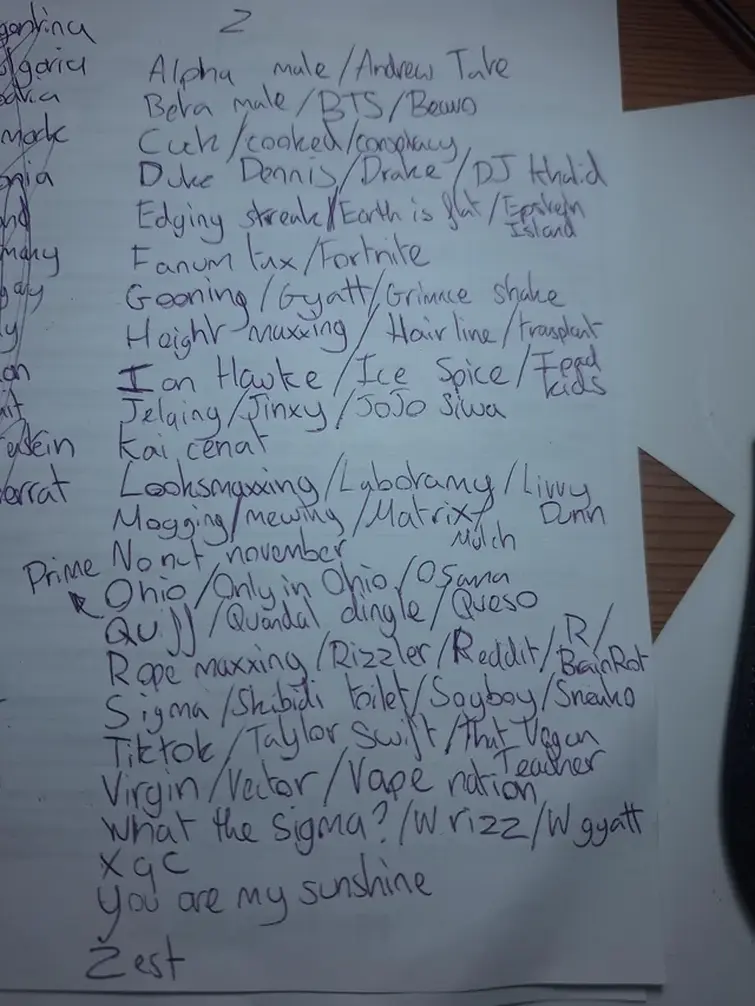 2
Alpha male/Andrew Tate
Beta male/BTS/
Cuck/cooked/conspiracy
Duke Dennis/Drake/DJ Khalid
Edging streak/Earth is flat/Epstein
Island
Fanum tax/Fortnite
Gooning/Gyatt/Grimace shake
Height maxxing/Hair line/transplant
Ion Hawke/Ice Spice/Ipad
kids
Jelqing/Jinxy/JoJo Siwa
Kai cenat
Looksmaxxing/Labotamy/Livvy
Dunn
Mogging/mewing/Matrix/
Mulch
No nut november
Prime
Ohio/Only in Ohio/Osama
/Quandal dingle/Queso
Rope maxxing/Rizzler/Reddit/R/
BrainRot
Sigma/Skibidi toilet/Soyboy/Sneako
Tiktok/Taylor Swift/That Vegan
Teacher
Virgin/Vector/Vape nation
What the sigma?/W rizz/W gyatt
XQC
You are my sunshine
Zest